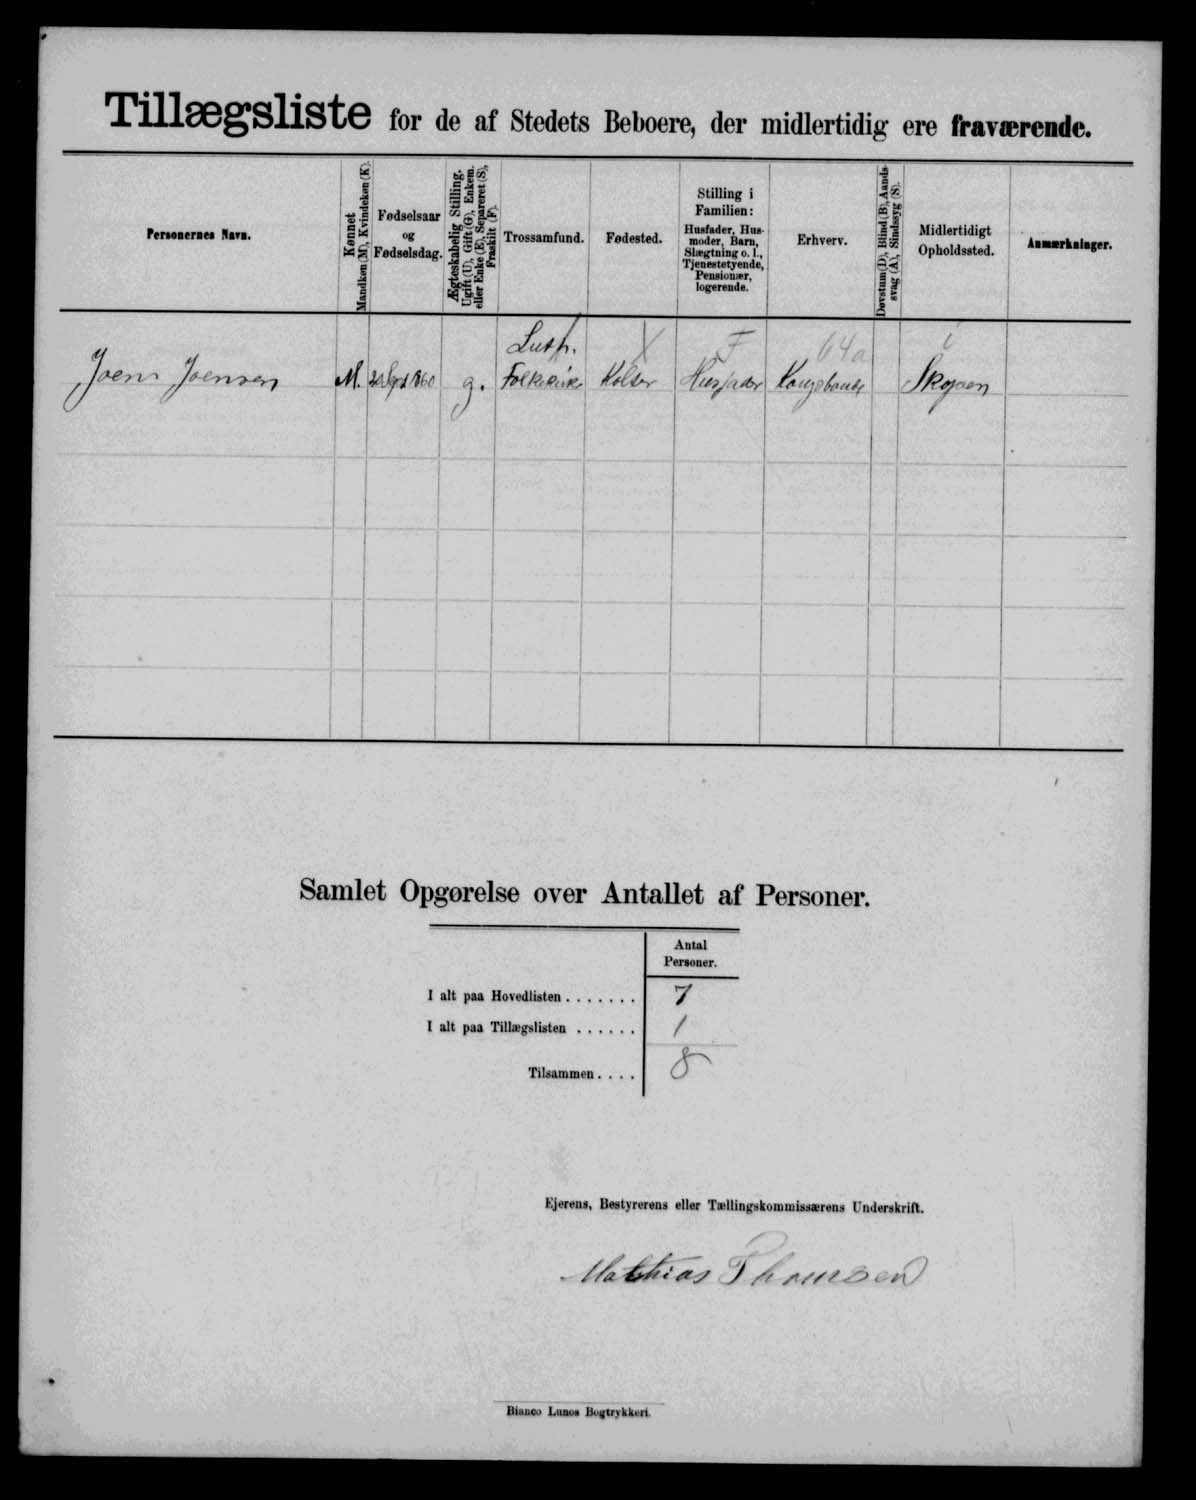 Tillægsliste for de af Stedets Beboere, der midlertidig ere fraværende.
Personernes Navn.
Kønnet
Mandkøn (M), Kvindekøn (K).
Fødselsaar
og
Fødselsdag.
Ægteskabelig Stilling.
Ugift (U), Gift (G), Enkem.
eller Enke (E), Separeret (S),
Fraskilt (F).
Trossamfund.
Fødested.
Stilling i
Familien:
Husfader, Hus-
moder, Barn,
Slægtning o. l.,
Tjenestetyende,
Pensionær,
logerende.
Erhverv.
Døvstum (D), Blind (B), Aands-
svag (A), Sindssyg (S).
Midlertidigt
Opholdssted.
Anmærkninger.
Luth. X F 64a
Joen Joensen M. 1860 g. Folkekirke Kolter Husfader Kongsbonde Skopen
Samlet Opgørelse over Antallet af Personer.
Antal
Personer.
I alt paa Hovedlisten . . . . . . . 7
I alt paa Tillægslisten . . . . . . 1
Tilsammen . . . . 8
Ejerens, Bestyrerens eller Tællingskommissærens Underskrift.
Mathias Thomsen
Bianco Lunos Bogtrykkeri.